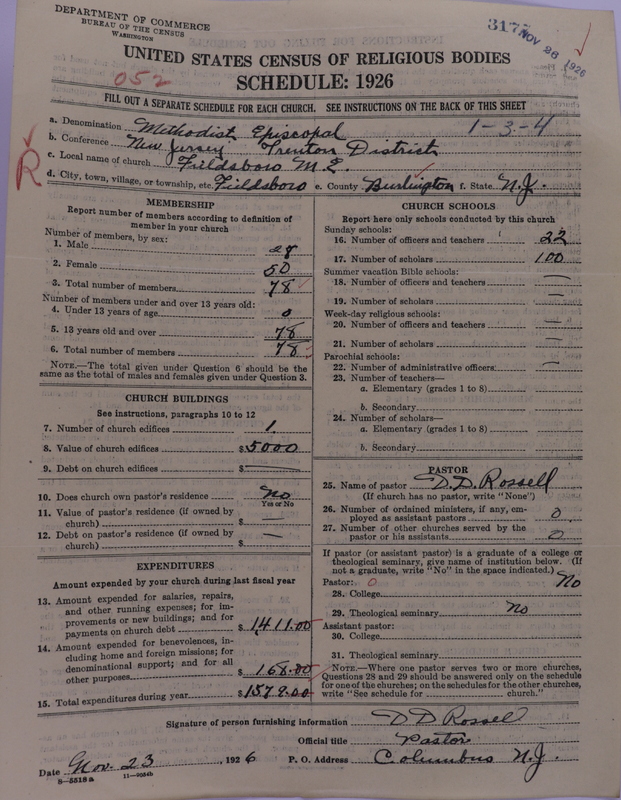 DEPARTMENT OF COMMERCE
BUREAU OF THE CENSUS
WASHINGTON
3177
NOV 26 1926
UNITED STATES CENSUS OF RELIGIOUS BODIES
SCHEDULE: 1926
052
FILL OUT A SEPARATE SCHEDULE FOR EACH CHURCH. SEE INSTRUCTIONS ON THE BACK OF THIS SHEET
a. Denomination Methodist Episcopal 1-3-4
b. Conference New Jersey Trenton District
R
c. Local name of church Fieldsboro M.E.
d. City, town, village, or township, etc. Fieldsboro e. County Burlington f. State N.J.
MEMBERSHIP
Report number of members according to definition of
member in your church
Number of members, by sex:
1. Male 28
2. Female 50
3. Total number of members 78
Number of members under and over 13 years old:
4. Under 13 years of age 0
5. 13 years old and over 78
6. Total number of members 78
NOTE.—The total given under Question 6 should be the
same as the total of males and females given under Question 3.
CHURCH BUILDINGS
See instructions, paragraphs 10 to 12
7. Number of church edifices 1.
8. Value of church edifices $5000
9. Debt on church edifices $
10. Does church own pastor's residence No
Yes or No
11. Value of pastor's residence (if owned by
church) $ —
12. Debt on pastor's residence (if owned by
church) $ —
EXPENDITURES
Amount expended by your church during last fiscal year
13. Amount expended for salaries, repairs,
and other running expenses; for im-
provements or new buildings; and for
payments on church debt $ 1411.00
14. Amount expended for benevolences, in-
cluding home and foreign missions; for
denominational support; and for all
other purposes $ 168.00
15. Total expenditures during year $1579.00
CHURCH SCHOOLS
Report here only schools conducted by this church
Sunday schools:
16. Number of officers and teachers 22
17. Number of scholars 100
Summer vacation Bible schools:
18. Number of officers and teachers —
19. Number of scholars —
Week-day religious schools:
20. Number of officers and teachers —
21. Number of scholars —
Parochial schools:
22. Number of administrative officers —
23. Number of teachers—
a. Elementary (grades 1 to 8)
b. Secondary
24. Number of scholars—
a. Elementary (grades 1 to 8)
b. Secondary
PASTOR
25. Name of pastor D.D. Rossell
(If church has no pastor, write "None")
26. Number of ordained ministers, if any, em-
ployed as assistant pastors 0
27. Number of other churches served by the
pastor or his assistants 0
If pastor (or assistant pastor) is a graduate of a college or
theological seminary, give name of institution below. (If
not a graduate, write "No" in the space indicated.)
Pastor: 0 No
28. College
29. Theological seminary No
Assistant pastor:
30. College
31. Theological seminary
NOTE.—Where one pastor serves two or more churches,
Questions 28 and 29 should be answered only on the schedule
for one of the churches; on the schedules for the other churches,
write "See schedule for ________ church."
Signature of person furnishing information D D Rossell
Official title Pastor
Date Nov. 23, 1926 P. O. Address Columbus N.J.
8—5518 a 11—9054b